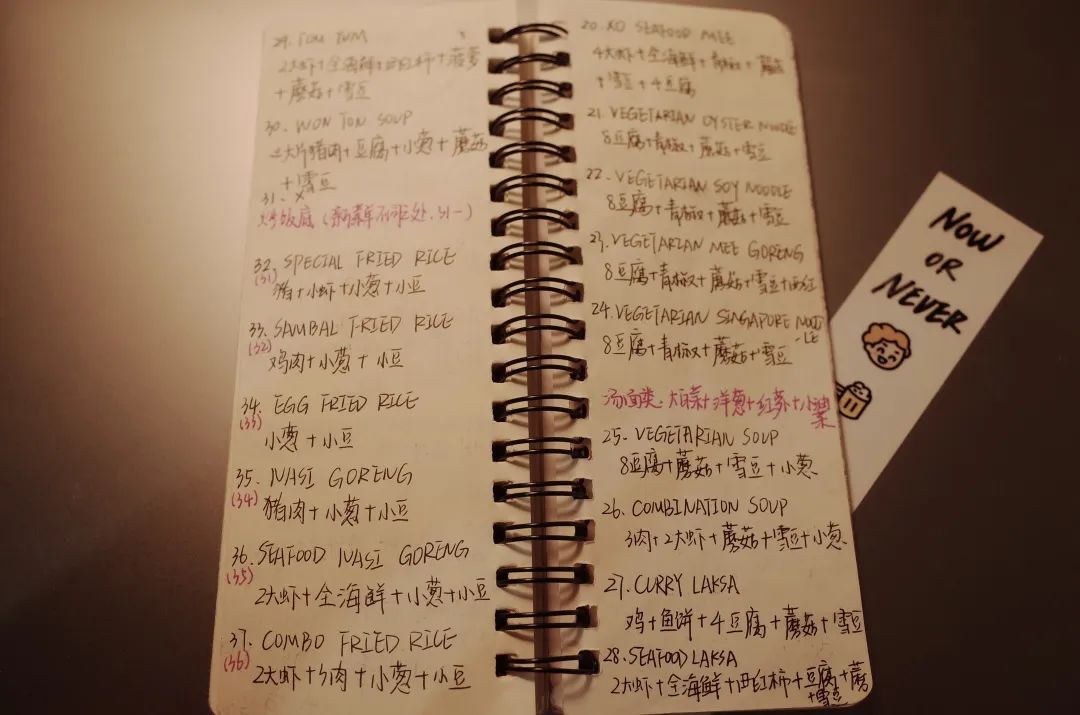 29. TOM YUM
2大虾+全海鲜+西红柿+菠萝
+蘑菇+雪豆
30. WON TON SOUP
三大片猪肉+豆腐+小葱+蘑菇
+雪豆
31. X
炒饭底(新菜单不同之处.31-)
32. SPECIAL FRIED RICE
(31)
猪+小虾+小葱+小豆
33. SAMBAL FRIED RICE
(32)
鸡肉+小葱+小豆
34. EGG FRIED RICE
(33)
小葱+小豆
35. NASI GORENG
(34)
猪肉+小葱+小豆
36. SEAFOOD NASI GORENG
(35)
2大虾+全海鲜+小葱+小豆
37. COMBO FRIED RICE
(36)
2大虾+3肉+小葱+小豆
20. XO SEAFOOD MEE
4大虾+全海鲜+青椒+蘑菇
+雪豆+4豆腐
21. VEGETARIAN OYSTER NOODLE
8豆腐+青椒+蘑菇+雪豆
22. VEGETARIAN SOY NOODLE
8豆腐+青椒+蘑菇+雪豆
23. VEGETARIAN MEE GORENG
8豆腐+青椒+蘑菇+雪豆+西红
24. VEGETARIAN SINGAPORE NOOD
-LE
8豆腐+青椒+蘑菇+雪豆
汤面类.大白菜+洋葱+红萝+小油
菜
25. VEGETARIAN SOUP
8豆腐+蘑菇+雪豆+小葱
26. COMBINATION SOUP
3肉+2大虾+蘑菇+雪豆+小葱
27. CURRY LAKSA
鸡+鱼饼+4豆腐+蘑菇+雪豆
28. SEAFOOD LAKSA
2大虾+全海鲜+西红柿+豆腐+蘑
+雪豆
NOW
OR
NEVER